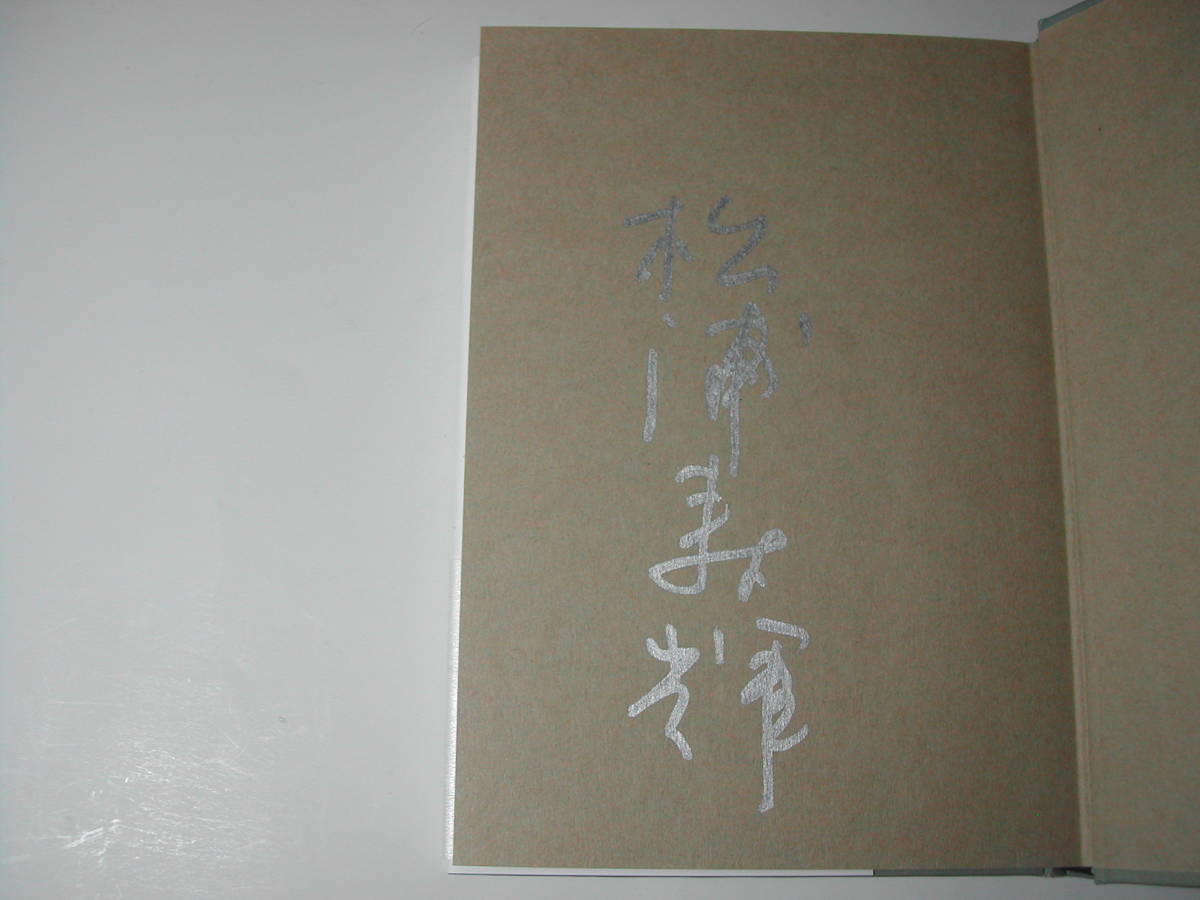 松浦寿輝